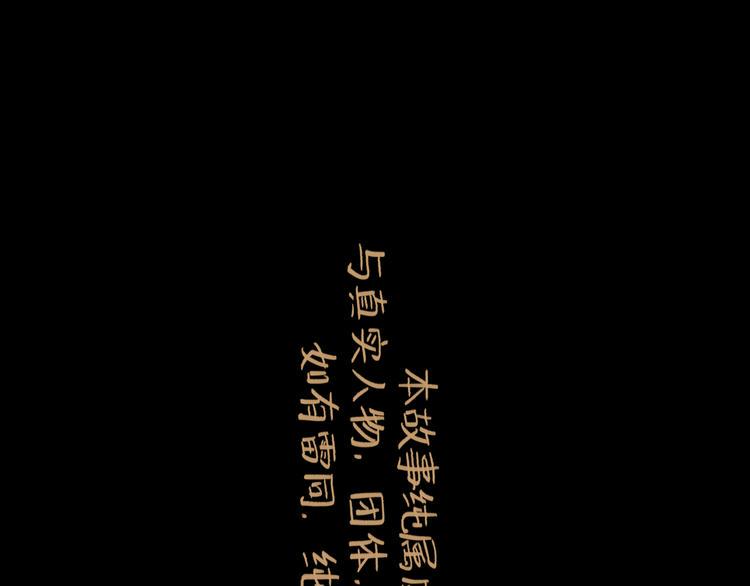 本故事纯属
与真实人物，团体，
如有雷同，纯